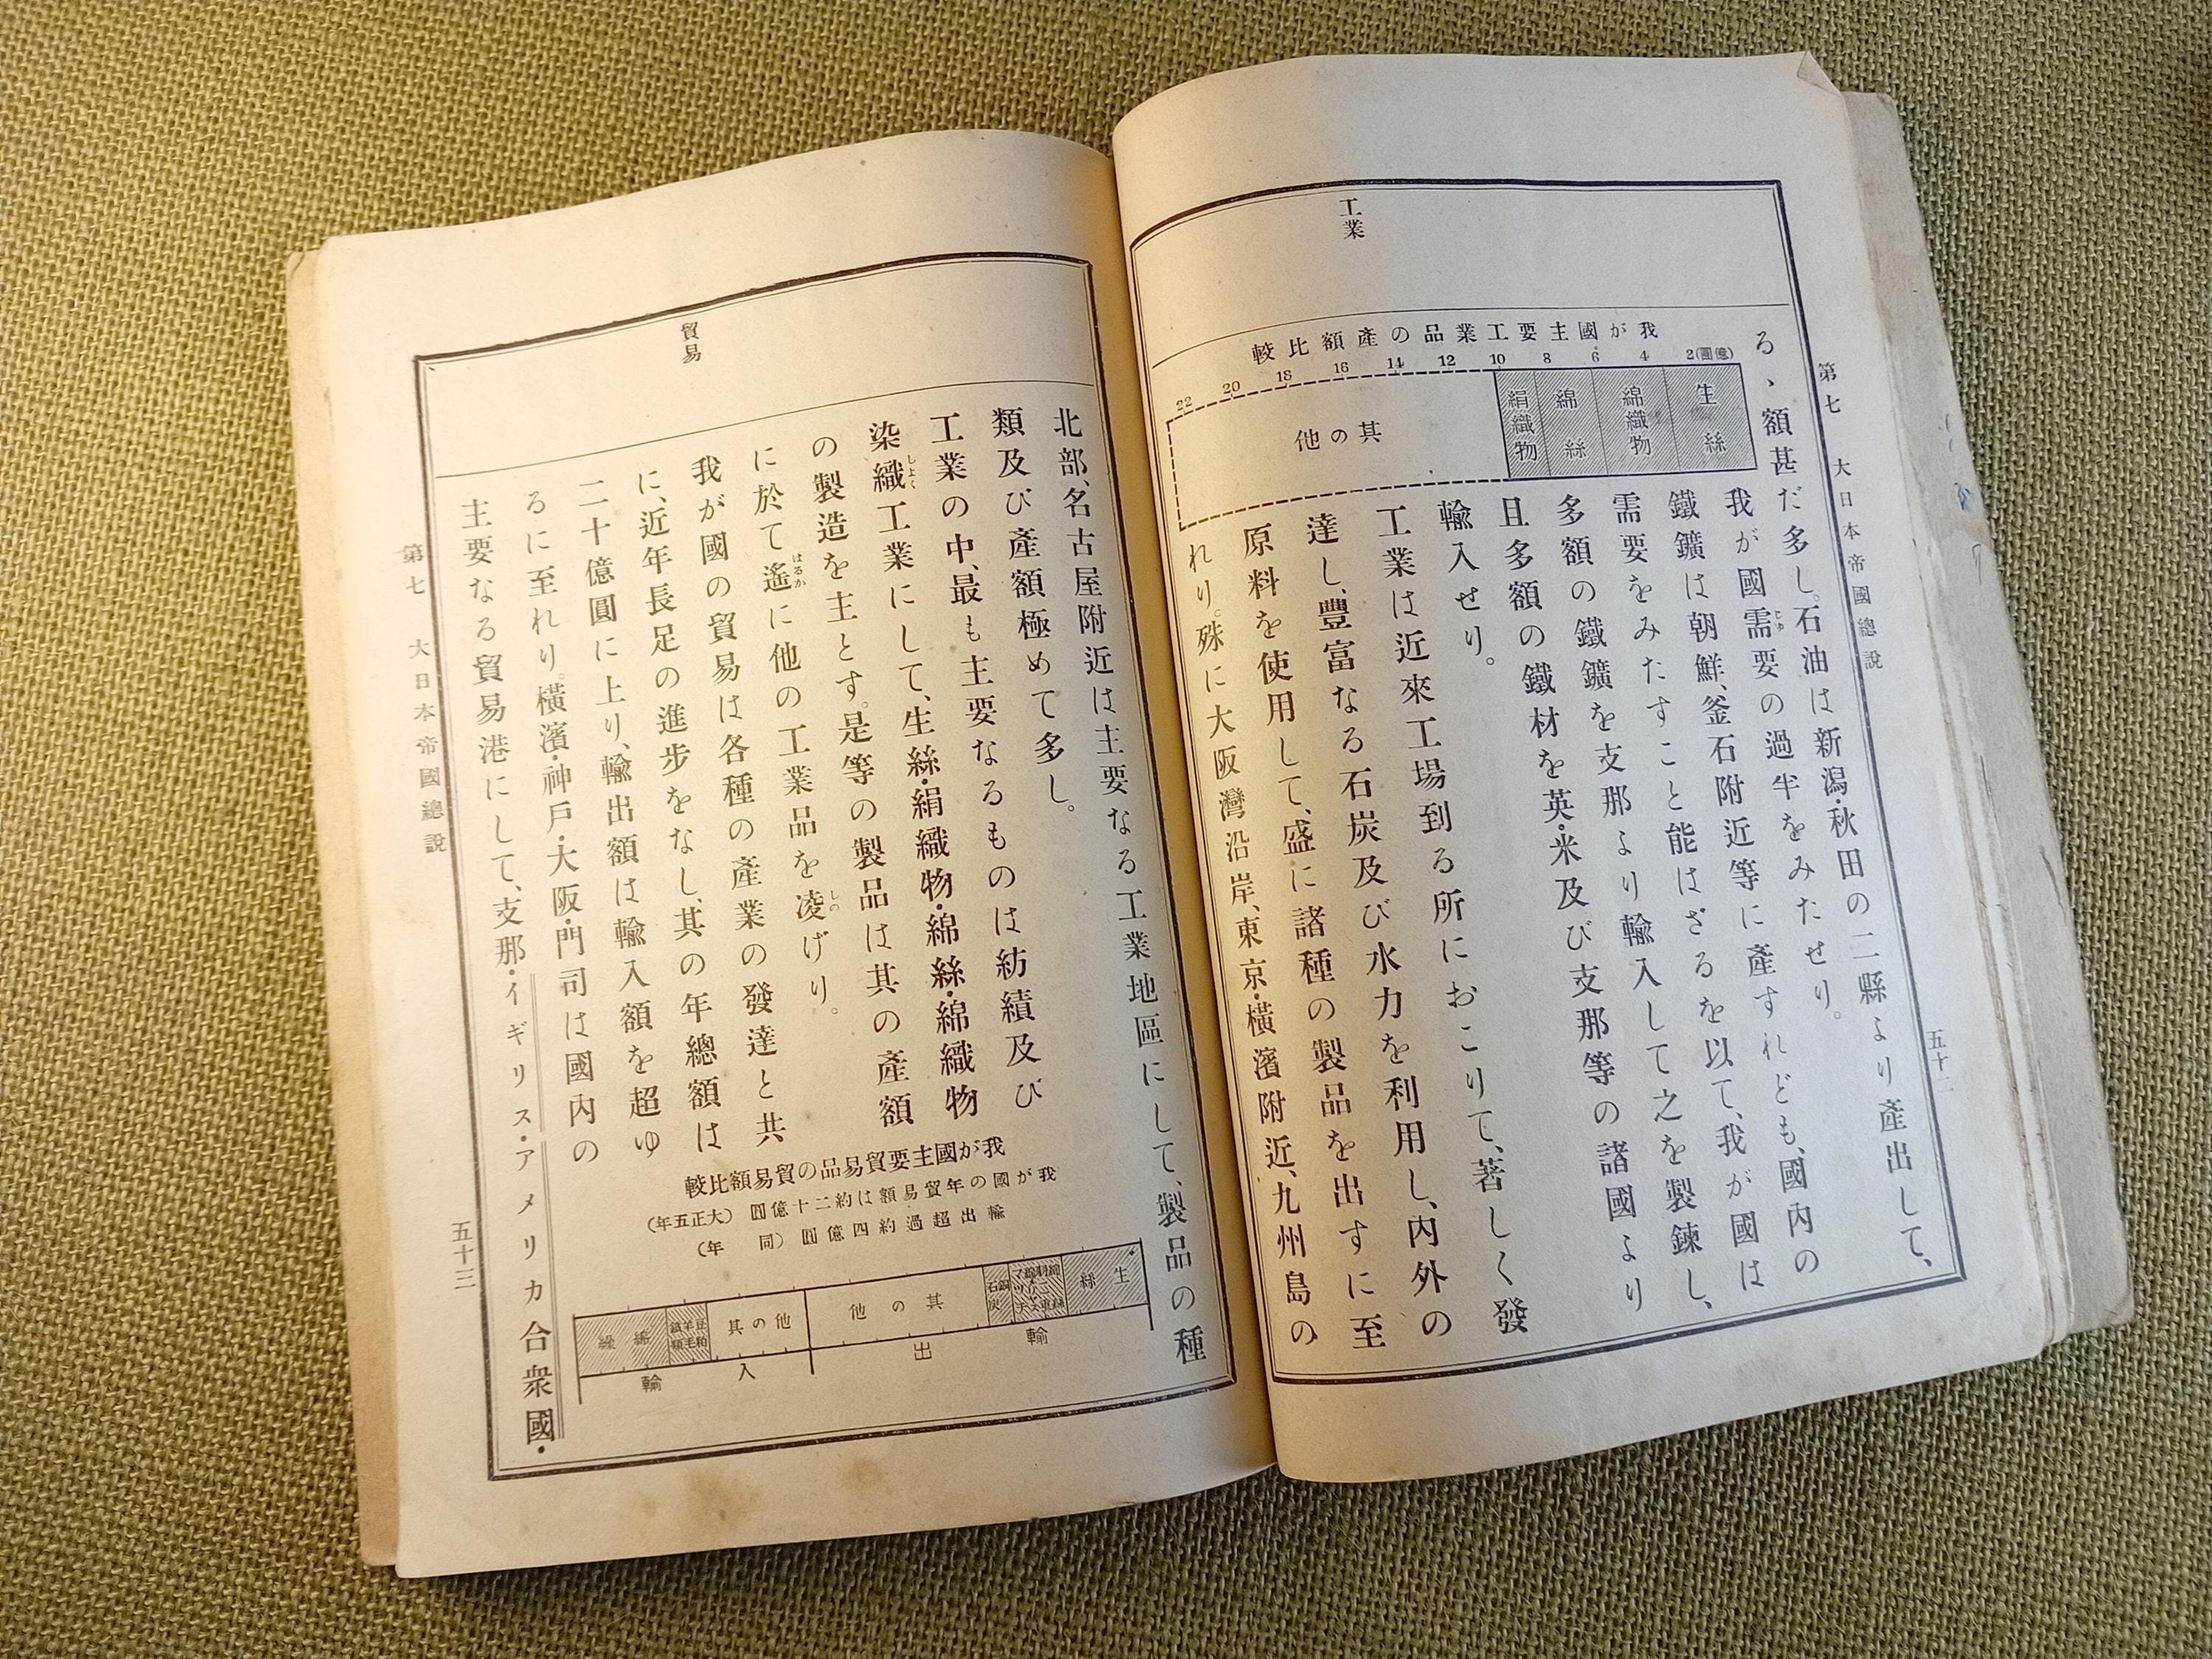 第七　大日本帝國總說
五十二
工業
我が國主要工業品の產額比較
2(億圓) 4 6 8 10 12 14 16 18 20 22
生絲
綿織物
綿絲
絹織物
其の他
る、額甚だ多し。石油は新潟・秋田の二縣より產出して、
我が國需要の過半をみたせり。
じゆ
鐵鑛は朝鮮、釜石附近等に產すれども、國內の
需要をみたすこと能はざるを以て、我が國は
多額の鐵鑛を支那より輸入して之を製鍊し、
且多額の鐵材を英・米及び支那等の諸國より
輸入せり。
工業は近來工場到る所におこりて、著しく發
達し、豐富なる石炭及び水力を利用し、內外の
原料を使用して、盛に諸種の製品を出すに至
れり。殊に大阪灣沿岸、東京・橫濱附近、九州島の
北部、名古屋附近は主要なる工業地區にして、製品の種
類及び產額極めて多し。
工業の中、最も主要なるものは紡績及び
染織工業にして、生絲・絹織物・綿絲・綿織物
しよく
の製造を主とす。是等の製品は其の產額
に於て遙に他の工業品を凌げり。
はるか
しの
貿易
我が國の貿易は各種の產業の發達と共
に、近年長足の進步をなし、其の年總額は
二十億圓に上り、輸出額は輸入額を超ゆ
るに至れり。橫濱・神戶・大阪・門司は國內の
主要なる貿易港にして、支那・イギリス・アメリカ合衆國・
我が國主要貿易品の貿易額比較
我が國の年貿易額は約二十億圓（大正五年）
輸出超過約四億圓（同年）
生絲
其の他
其の他
繰綿
輸出
輸入
第七　大日本帝國總說
五十三